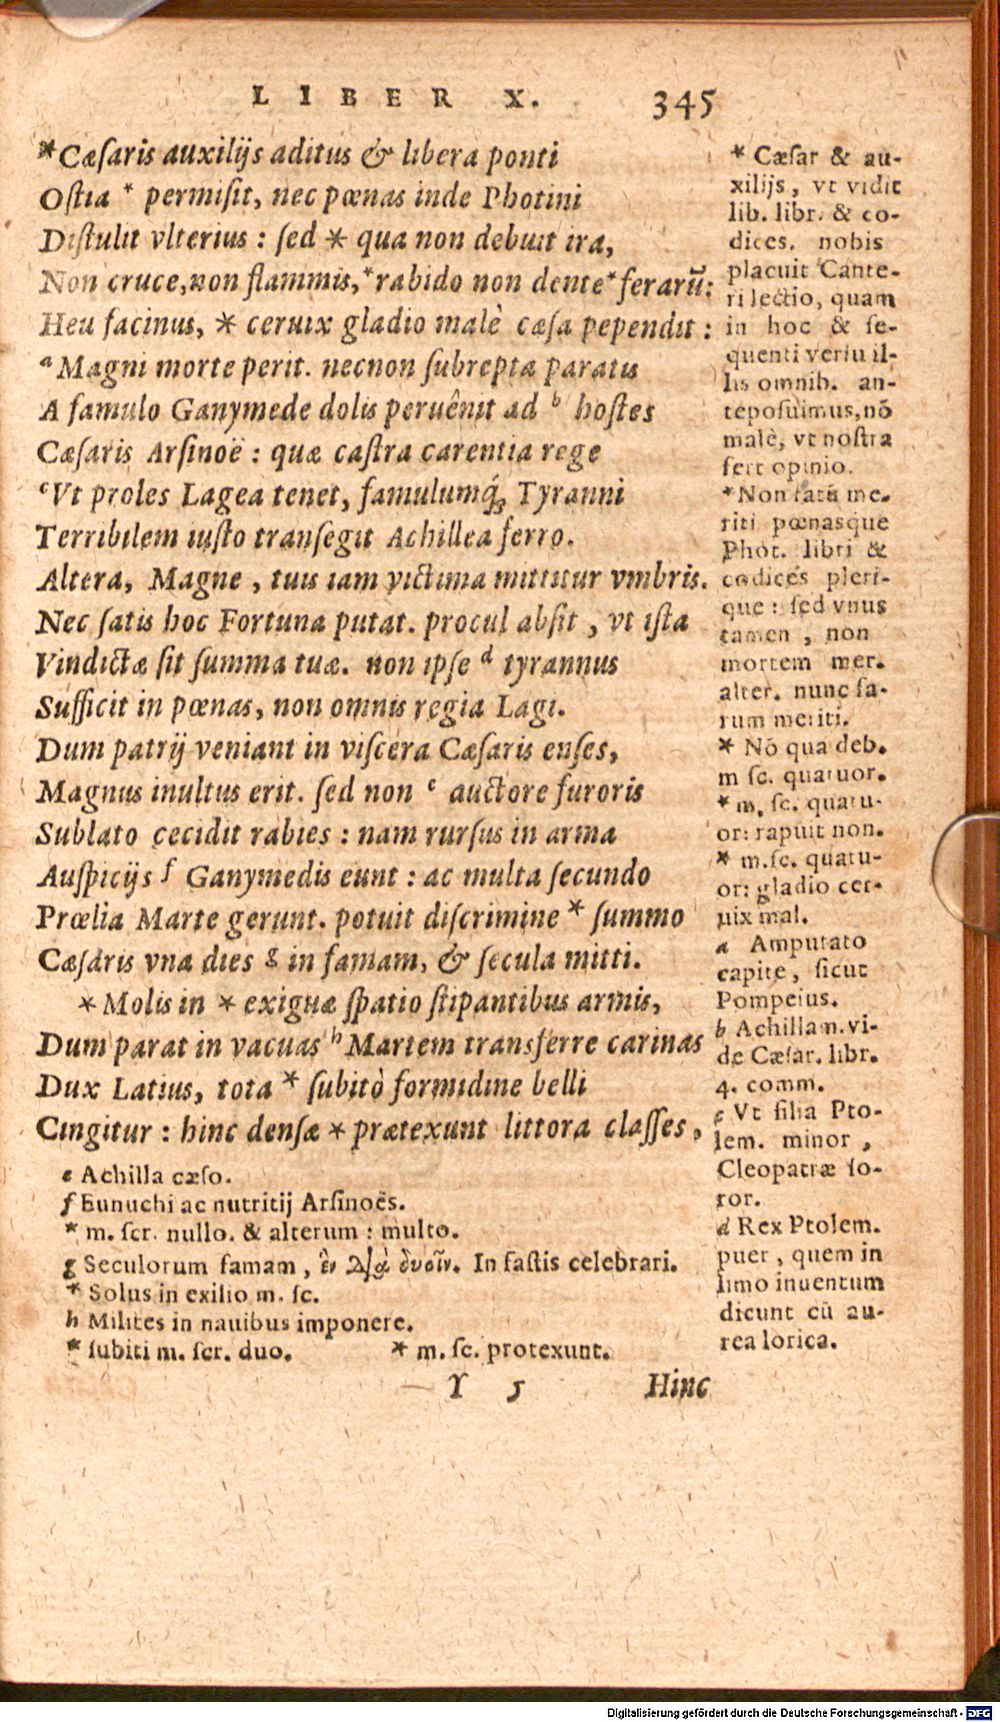 LIBER X. 345
*Cæſaris auxilijs aditus & libera ponti
Oſtia * permiſit, nec pœnas inde Photini
Diſtulit vlterius : ſed * qua non debuit ira,
Non cruce, non flammis, * rabido non dente * ferarū:
Heu facinus, * ceruix gladio malè cæſa pependit :
a Magni morte perit. necnon ſubrepta paratis
A famulo Ganymede dolis peruênit ad b hoſtes
Cæſaris Arſinoë : quæ caſtra carentia rege
c Vt proles Lagea tenet, famulumq́; Tyranni
Terribilem iuſto tranſegit Achillea ferro.
Altera, Magne, tuis iam victima mittitur vmbris.
Nec ſatis hoc Fortuna putat. procul abſit, vt iſta
Vindictæ ſit ſumma tuæ. non ipſe d tyrannus
Sufficit in pœnas, non omnis regia Lagi.
Dum patrij veniant in viſcera Cæſaris enſes,
Magnus inultus erit. ſed non e auctore furoris
Sublato cecidit rabies : nam rurſus in arma
Auſpicijs f Ganymedis eunt : ac multa ſecundo
Prœlia Marte gerunt. potuit diſcrimine * ſummo
Cæſaris vna dies g in famam, & ſecula mitti.
* Molis in * exiguæ ſpatio ſtipantibus armis,
Dum parat in vacuas h Martem transferre carinas
Dux Latius, tota * ſubitò formidine belli
Cingitur : hinc denſæ * prætexunt littora claſſes,
* Cæſar & au-
xilijs, vt vidit
lib. libr. & co-
dices. nobis
placuit Cante-
ri lectio, quam
in hoc & ſe-
quenti verſu il-
lis omnib. an-
tepoſuimus, nō
malè, vt noſtra
fert opinio.
* Non fatū me-
riti pœnasque
Phot. libri &
codices pleri-
que : ſed vnus
tamen, non
mortem mer.
alter. nunc fa-
rum meriti.
* Nō qua deb.
m ſc. quatuor.
* m. ſc. quatu-
or: rapuit non.
* m. ſc. quatu-
or: gladio cer-
uix mal.
a Amputato
capite, ſicut
Pompeius.
b Achillam. vi-
de Cæſar. libr.
4. comm.
c Vt filia Pto-
lem. minor,
Cleopatræ ſo-
ror.
d Rex Ptolem.
puer, quem in
limo inuentum
dicunt cū au-
rea lorica.
e Achilla cæſo.
f Eunuchi ac nutritij Arſinoës.
* m. ſcr. nullo. & alterum : multo.
g Seculorum famam, ἓν διὰ δυοῖν. In faſtis celebrari.
* Solus in exilio m. ſc.
h Milites in nauibus imponere.
* ſubiti m. ſcr. duo. * m. ſc. protexunt.
Y 5 Hinc
Digitalisierung gefördert durch die Deutsche Forschungsgemeinschaft - DFG